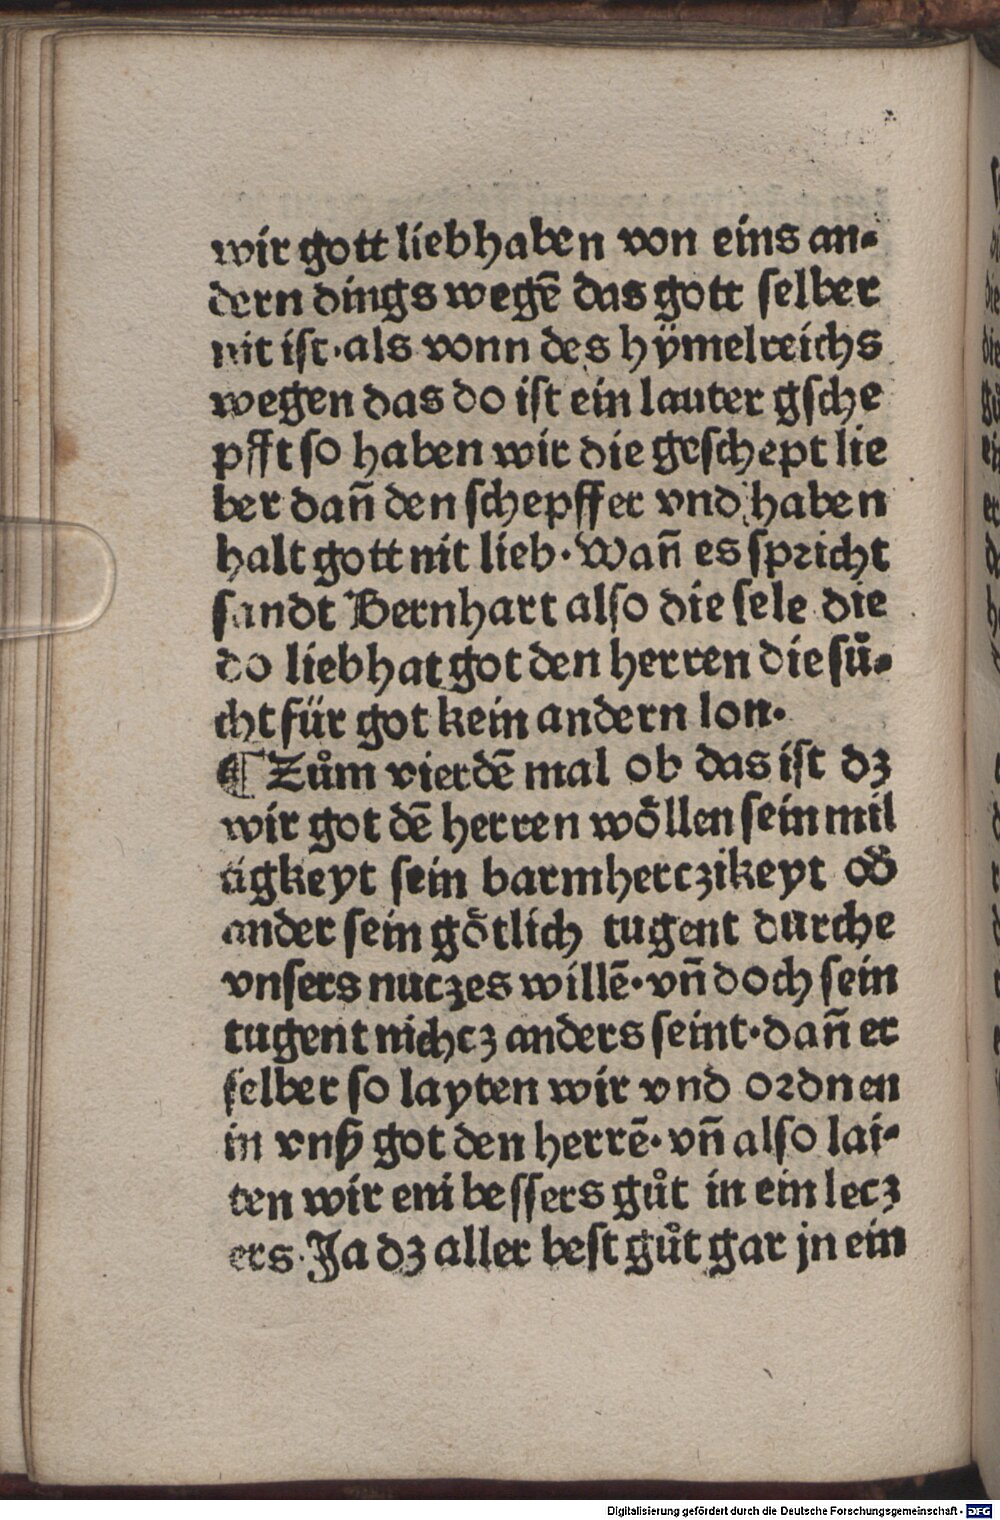 wir gott liebhaben von eins an⸗
dern dings wegē das gott selber
nit ist·als vonn des hÿmelreichs
wegen das do ist ein lauter gsche
pfft so haben wir die geschept lie
ber dañ den schepffer vnd haben
halt gott nit lieb·Wañ es spricht
sandt Bernhart also die sele die
do liebhat got den herren die sů⸗
cht für got kein andern lon·
¶ Zům vierdē mal ob das ist dz
wir got dē herren wöllen sein mil
tigkeyt sein barmherczikeyt od̄
ander sein götlich tugent durche
vnsers nuczes willē·vñ doch sein
tugent nichcz anders seint·dañ er
selber so layten wir vnd ordnen
in vnß got den herrē·vñ also lai⸗
ten wir eni bessers gůt in ein lecz
ers·Ja dz aller best gůt gar jn ein
Digitalisierung gefördert durch die Deutsche Forschungsgemeinschaft - DFG